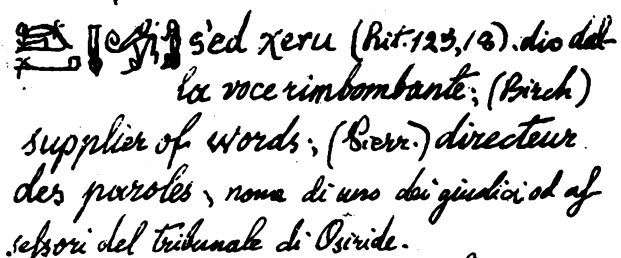 s'ed χeru (Rit. 125, 18). dio dal-
la voce rimbombante; (Birch)
supplier of words; (Pierr.) directeur
des paroles, nome di uno dei giudici od as
sessori del tribunale di Osiride.